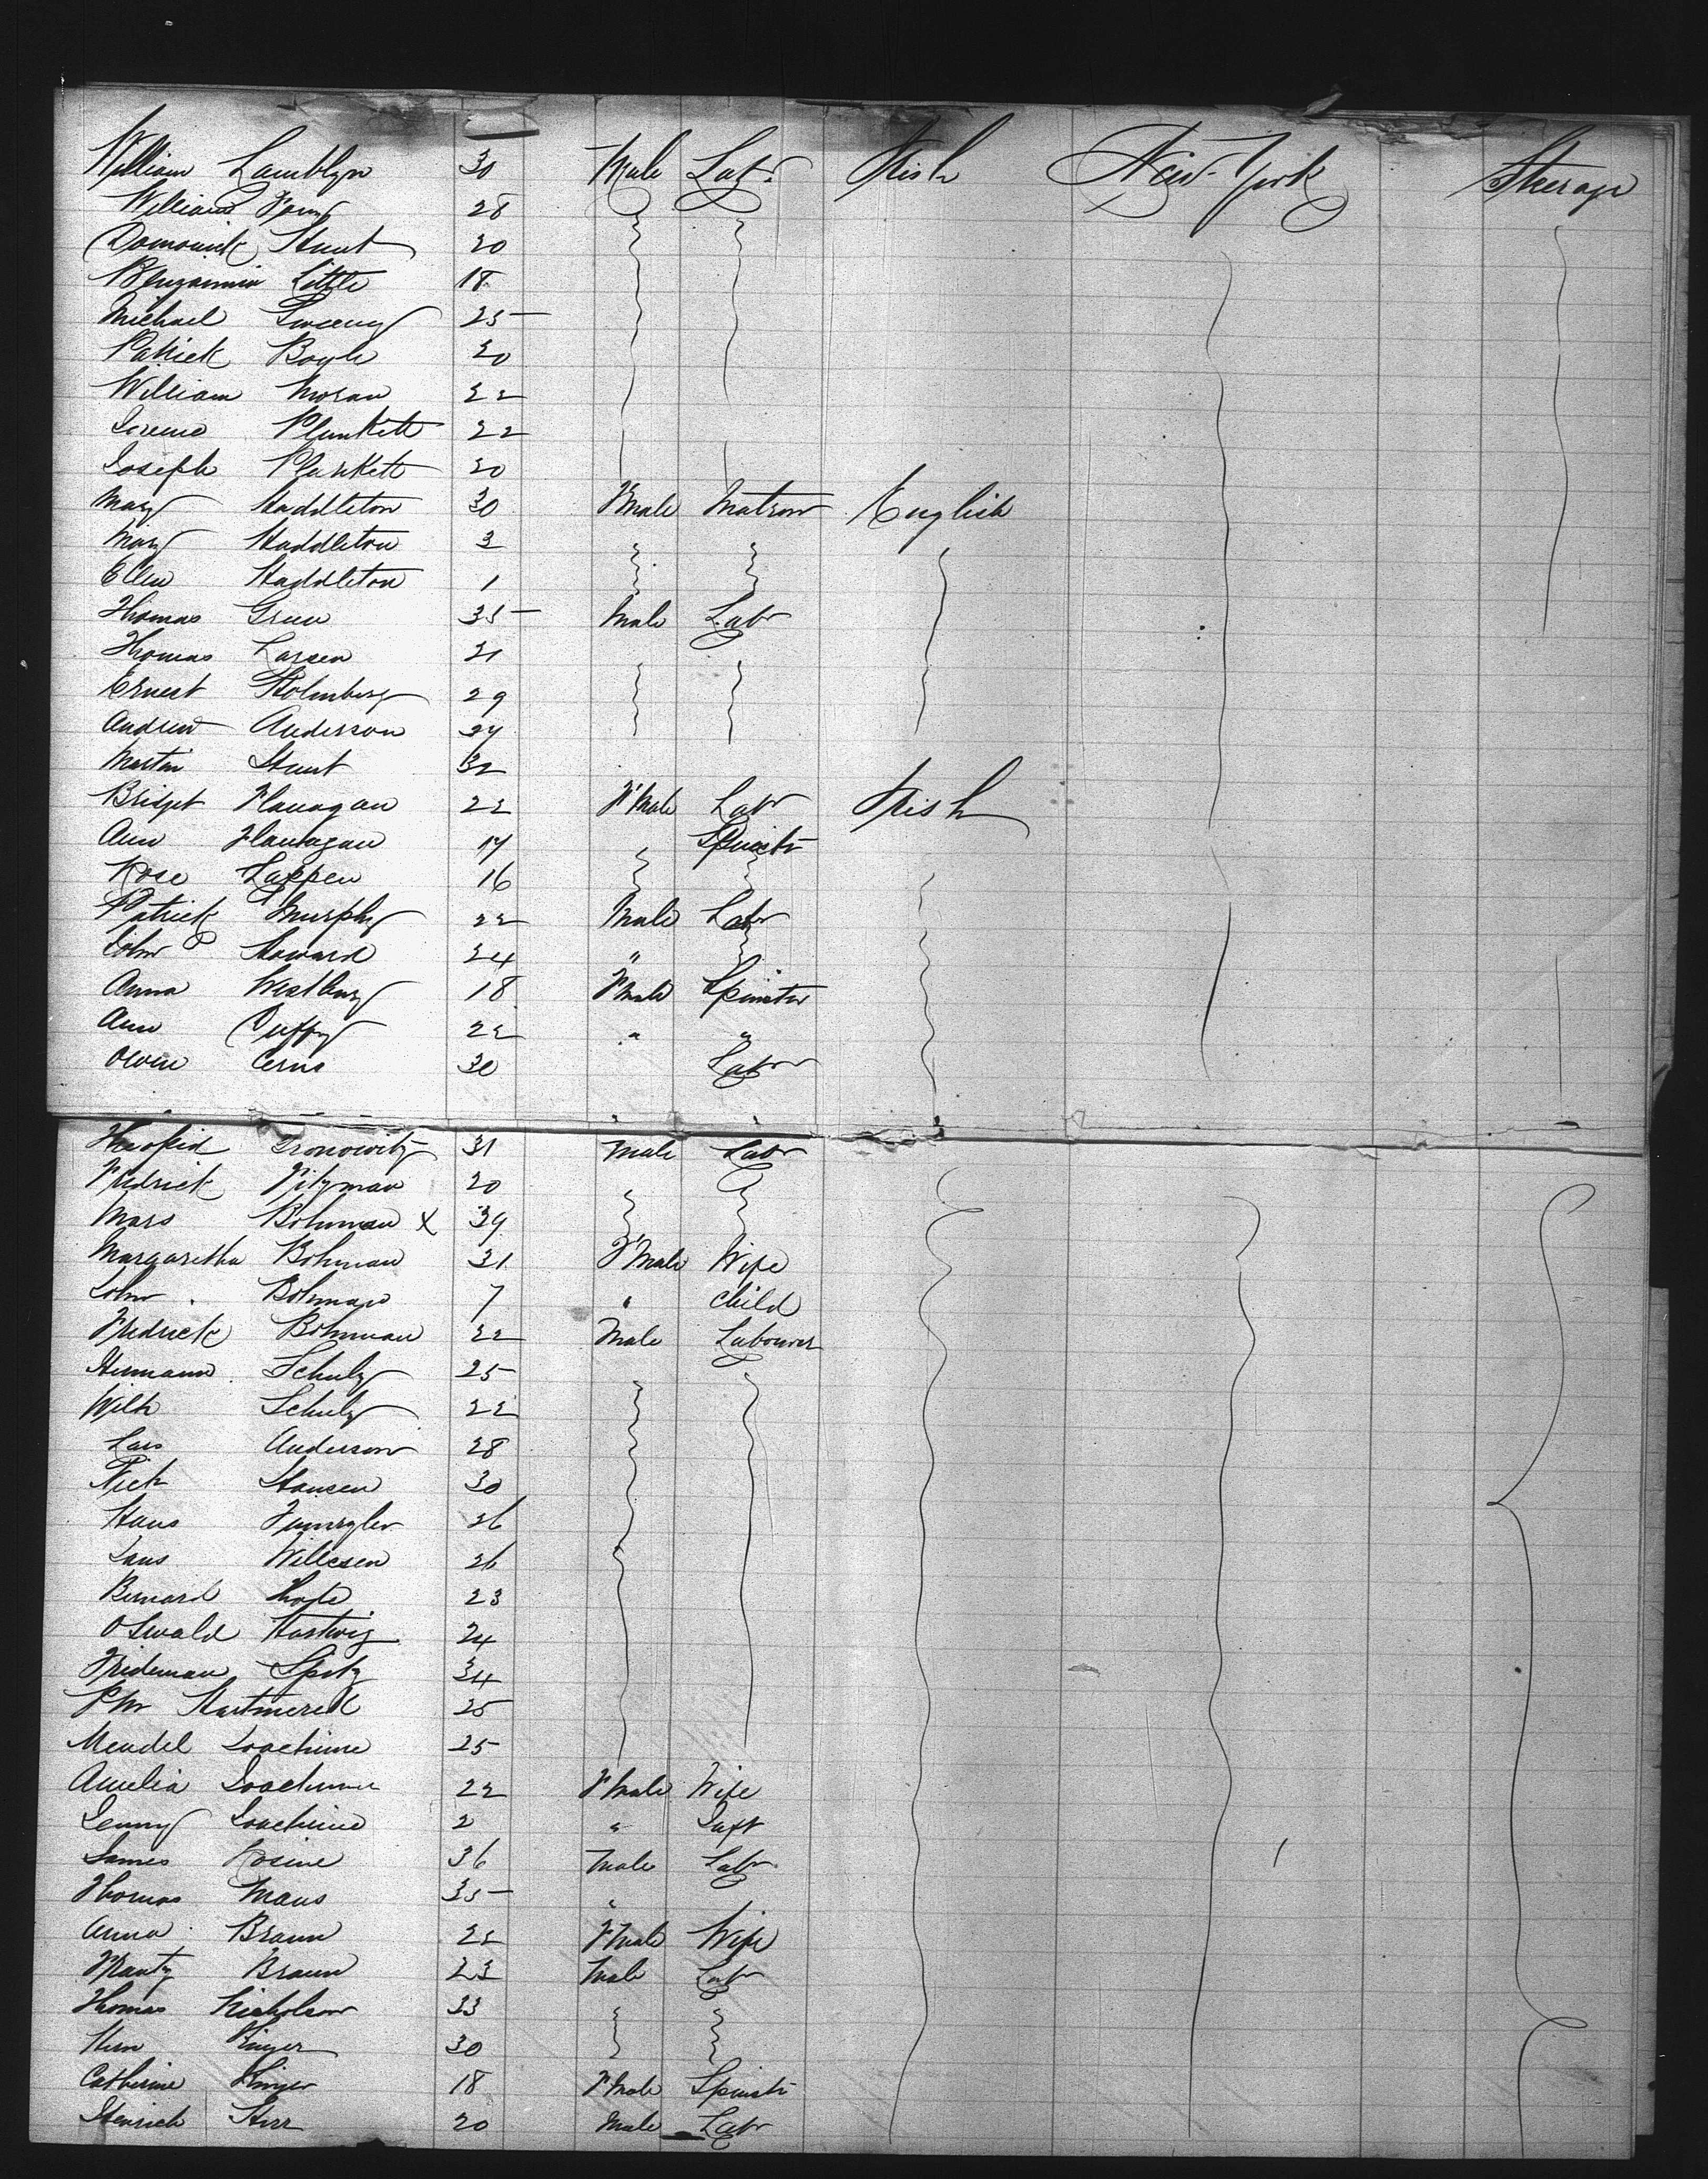 William Lamblyn 30 Male Labr Irish New-York Steerage
William 28
Domonick Hunt 20
Benjamin Little 18
Michael Sweeny 25
Patrick Boyle 20
William Moran 22
Plunkett 22
Joseph Plunkett 20
Mary Haddleton 30 F'Male Matron English
Mary Haddleton 3
Ellen Haddleton 1
Thomas Green 35 Male Labr
Thomas Larsen 21
Ernest Holmberg 29
Andrew Anderson 24
Martin Hunt 32
Bridget Flanagan 22 F'Male Labr Irish
Ann Flanagan 17 Spinstr
Rose Lappen 16
Patrick Murphy 22 Male Labr
John Howard 24 "
Anna Westburg 18 F'Male Spinster
Ann Duffy 22 " "
Owen Cerns 30 Labr
Gronowitz 31 Male Labr
Fredrick Fitzman 20
Mars Bohman x 39
Margaretha Bohman 31 F'Male Wife
John Bohman 7 " Child
Fredrick Bohman 22 Male Labourer
Hermann Schulz 25
Wilh Schulz 22
Lars Anderson 28
Nick Hansen 30
Hans 26
Willesen 26
Bernard 23
Oswald Hartwig 24
Frideman Spitz 34
Hartmerell 25
Mendel Joachime 25
Amelia Joachime 22 F'Male Wife
Jenny Joachime 2 " Inft
James Rosine 36 Male Labr
Thomas Mans 35 "
Anna Braun 22 F'Male Wife
Frantz Braun 23 Male Labr
Thomas Nicholson 33
Herm 30
Catherine 18 F'Male Spinstr
Heinrich Herr 20 Male Labr